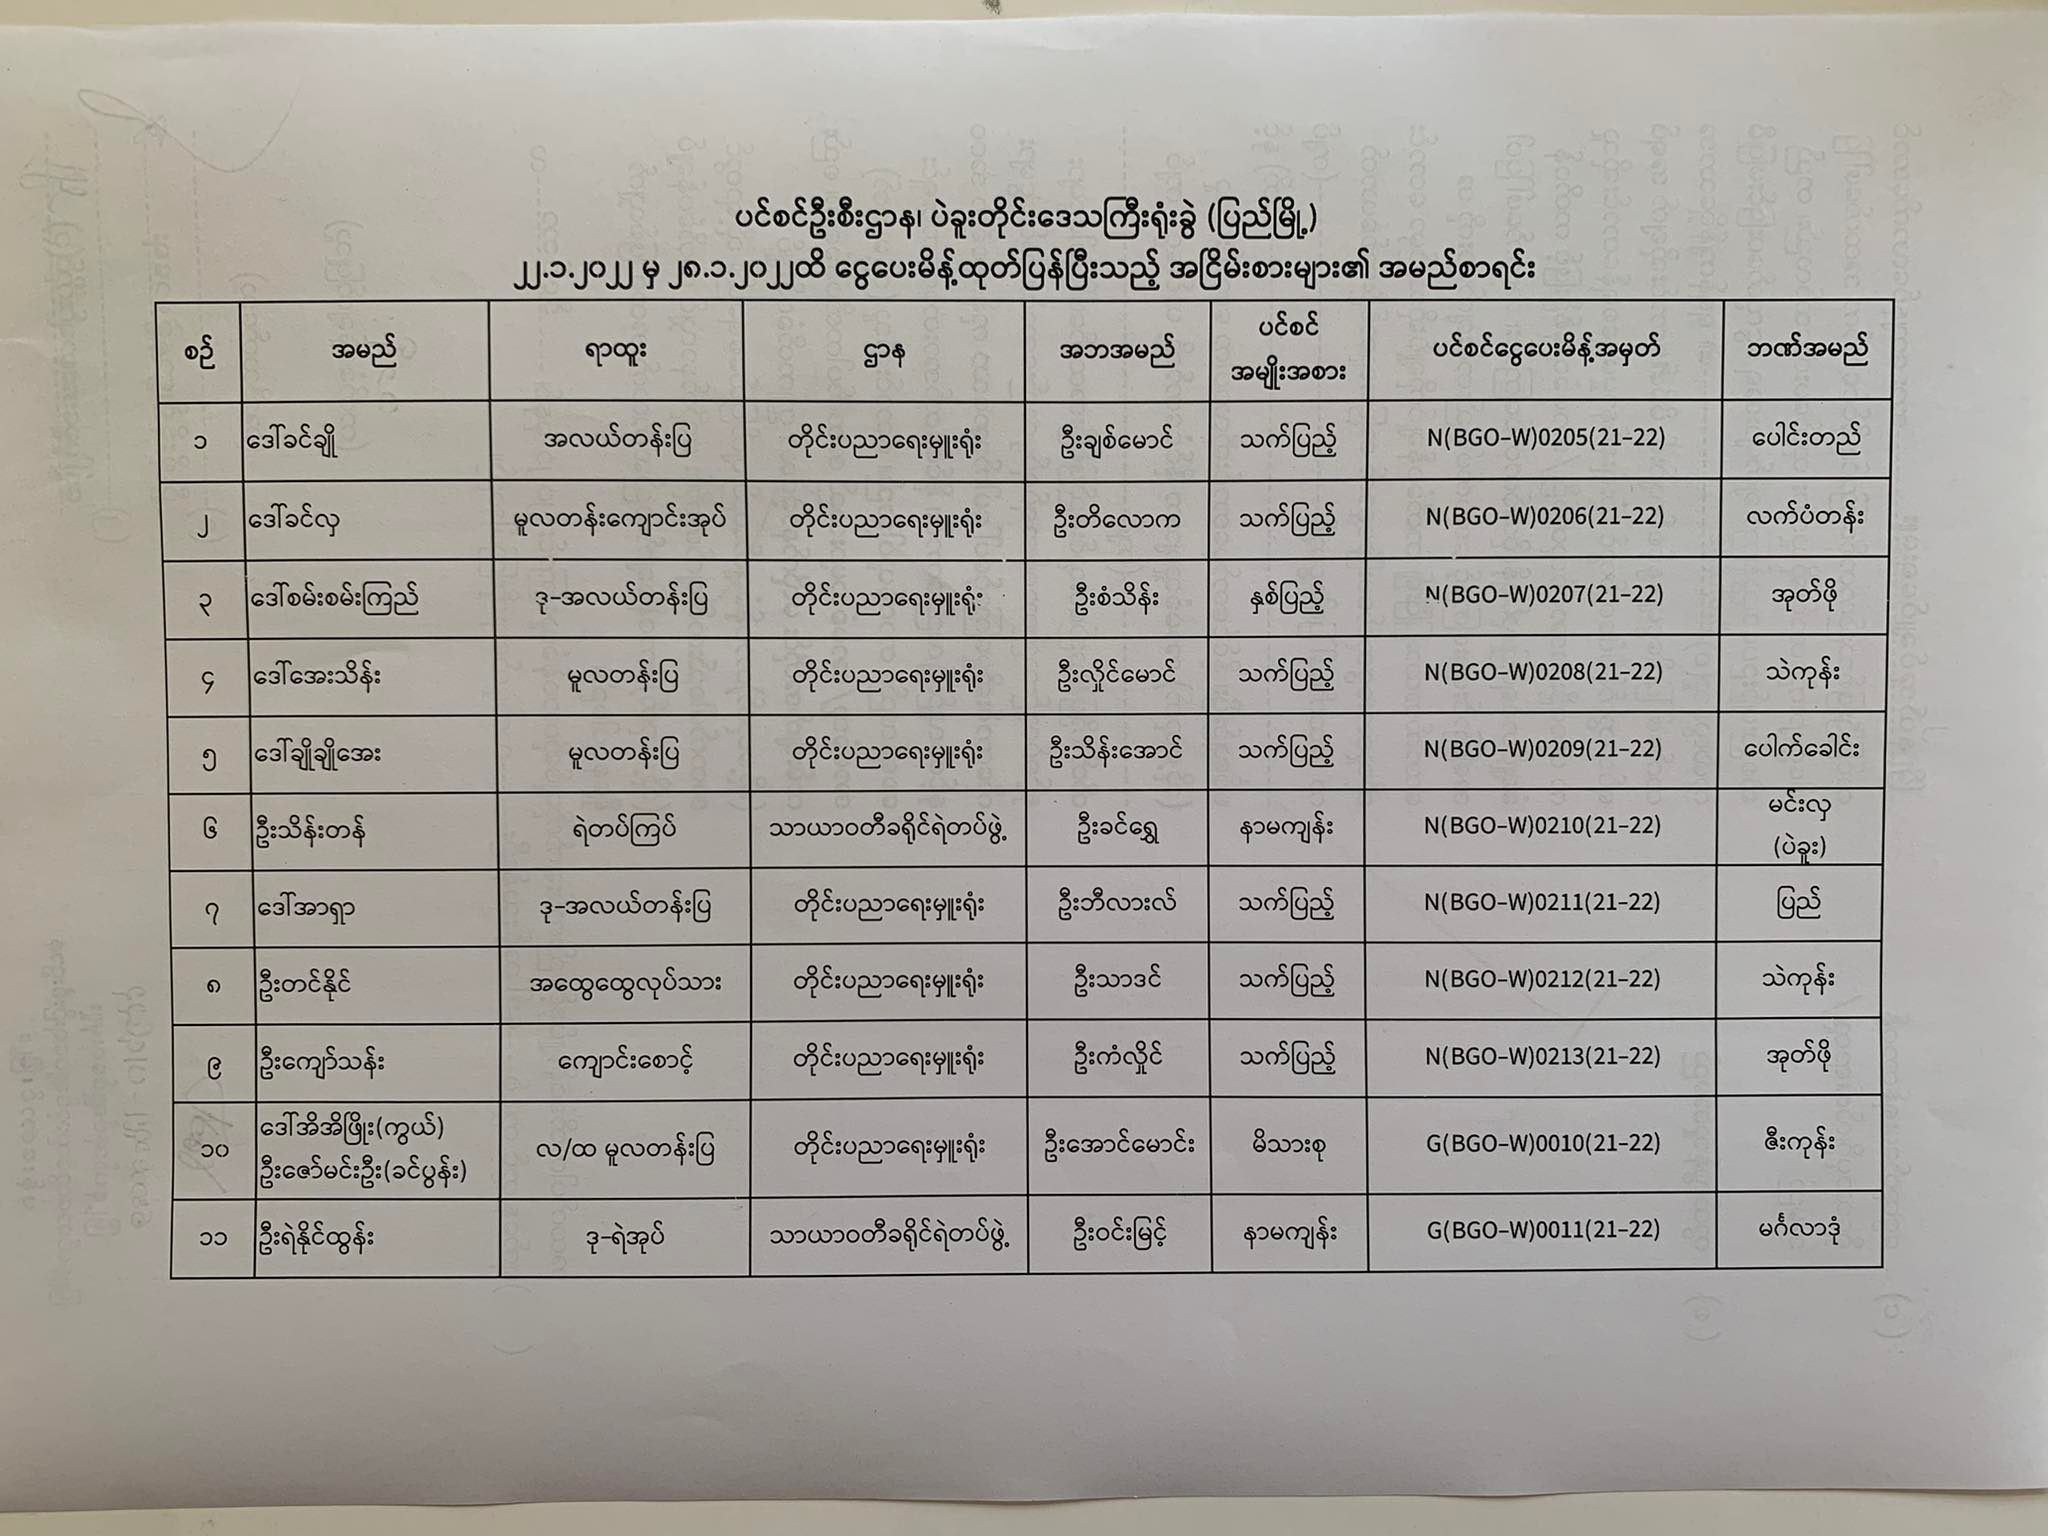 ပင်စင်ဦးစီးဌာန၊ ပဲခူးတိုင်းဒေသကြီးရုံးခွဲ (ပြည်မြို့)
၂၂.၁.၂၀၂၂ မှ ၂၈.၁.၂၀၂၂ထိ ငွေပေးမိန့်ထုတ်ပြန်ပြီးသည့် အငြိမ်းစားများ၏ အမည်စာရင်း
စဉ် အမည် ရာထူး ဌာန အဘအမည် ပင်စင် အမျိုးအစား ပင်စင်ငွေပေးမိန့်အမှတ် ဘဏ်အမည်
၁ ဒေါ်ခင်ချို အလယ်တန်းပြ တိုင်းပညာရေးမှူးရုံး ဦးချစ်မောင် သက်ပြည့် N(BGO-W)0205(21-22) ပေါင်းတည်
၂ ဒေါ်ခင်လှ မူလတန်းကျောင်းအုပ် တိုင်းပညာရေးမှူးရုံး ဦးတိလောက သက်ပြည့် N(BGO-W)0206(21-22) လက်ပံတန်း
၃ ဒေါ်စမ်းစမ်းကြည် ဒု-အလယ်တန်းပြ တိုင်းပညာရေးမှူးရုံး ဦးစံသိန်း နှစ်ပြည့် N(BGO-W)0207(21-22) အုတ်ဖို
၄ ဒေါ်အေးသိန်း မူလတန်းပြ တိုင်းပညာရေးမှူးရုံး ဦးလှိုင်မောင် သက်ပြည့် N(BGO-W)0208(21-22) သဲကုန်း
၅ ဒေါ်ချိုချိုအေး မူလတန်းပြ တိုင်းပညာရေးမှူးရုံး ဦးသိန်းအောင် သက်ပြည့် N(BGO-W)0209(21-22) ပေါက်ခေါင်း
၆ ဦးသိန်းတန် ရဲတပ်ကြပ် သာယာဝတီခရိုင်ရဲတပ်ဖွဲ့ ဦးခင်ရွှေ နာမကျန်း N(BGO-W)0210(21-22) မင်းလှ (ပဲခူး)
၇ ဒေါ်အာရှာ ဒု-အလယ်တန်းပြ တိုင်းပညာရေးမှူးရုံး ဦးဘီလားလ် သက်ပြည့် N(BGO-W)0211(21-22) ပြည်
၈ ဦးတင်နိုင် အထွေထွေလုပ်သား တိုင်းပညာရေးမှူးရုံး ဦးသာဒင် သက်ပြည့် N(BGO-W)0212(21-22) သဲကုန်း
၉ ဦးကျော်သန်း ကျောင်းစောင့် တိုင်းပညာရေးမှူးရုံး ဦးကံလှိုင် သက်ပြည့် N(BGO-W)0213(21-22) အုတ်ဖို
၁၀ ဒေါ်အိအိဖြိုး(ကွယ်) ဦးဇော်မင်းဦး(ခင်ပွန်း) လ/ထ မူလတန်းပြ တိုင်းပညာရေးမှူးရုံး ဦးအောင်မောင်း မိသားစု G(BGO-W)0010(21-22) ဇီးကုန်း
၁၁ ဦးရဲနိုင်ထွန်း ဒု-ရဲအုပ် သာယာဝတီခရိုင်ရဲတပ်ဖွဲ့ ဦးဝင်းမြင့် နာမကျန်း G(BGO-W)0011(21-22) မင်္ဂလာဒုံ